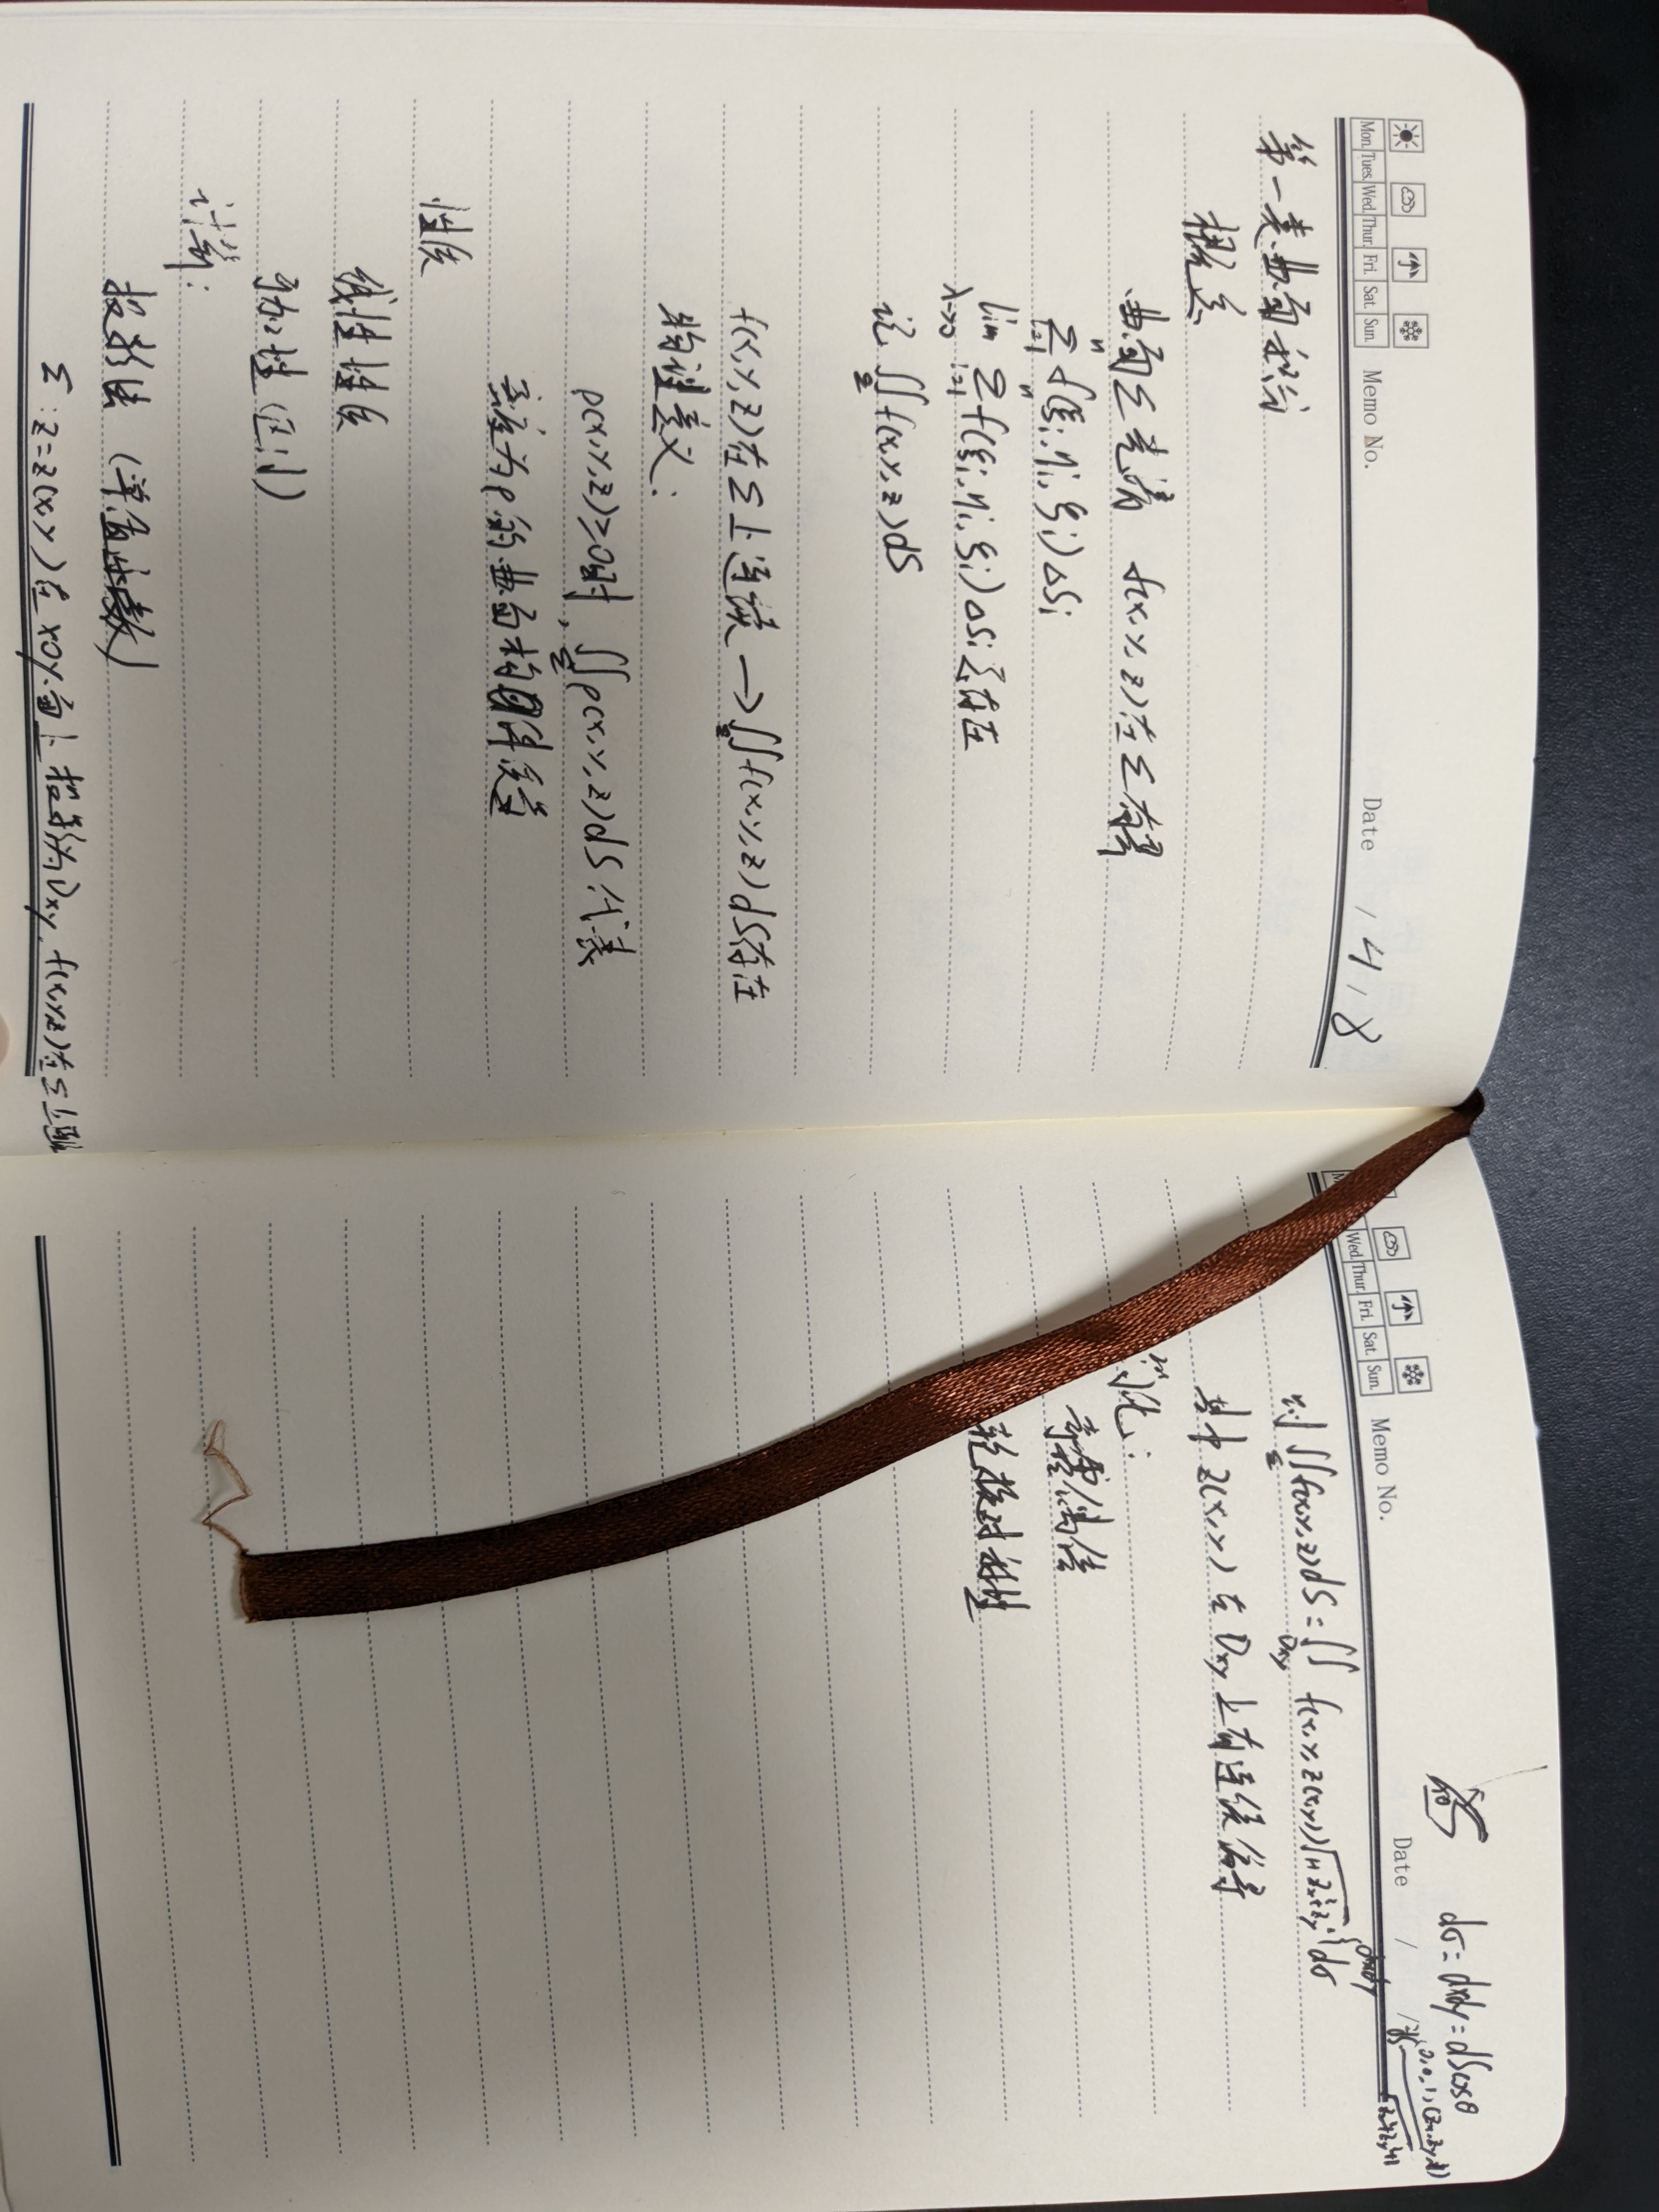 Mon. Tues. Wed. Thur. Fri. Sat. Sun.
Memo No.
Date / 4 / 8
第一类曲面积分
概念
曲面Σ光滑 f(x,y,z)在Σ有界
n∑i=1 f(ξi,ηi,ζi)ΔSi
lim λ→0 n∑i=1 f(ξi,ηi,ζi)ΔSi 存在
记 ∬Σ f(x,y,z)dS
f(x,y,z)在Σ上连续→∬Σ f(x,y,z)dS存在
物理意义:
ρ(x,y,z)≥0时, ∬Σ ρ(x,y,z)dS代表
密度为ρ的曲面构件质量
性质
线性性质
可加性(区别)
计算:
投影法 (单值函数)
Σ:z=z(x,y)在xoy面上投影为Dxy, f(x,y,z)在Σ上
dσ=dxdy=dScosθ
Wed. Thur. Fri. Sat. Sun.
Memo No.
Date / /
则∬Σ f(x,y,z)dS=∬Dxy f(x,y,z(x,y))√1+zx²+zy² dσ
dxdy
其中 z(x,y) 在 Dxy 上有连续偏导
化:
奇偶性
轮换对称性